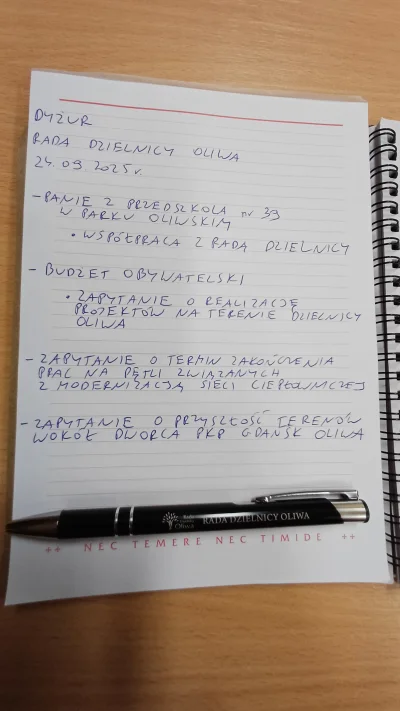 DYŻUR
RADA DZIELNICY OLIWA
24.09.2025r.
- PANIE Z PRZEDSZKOLA nr 39
W PARKU OLIWSKIM
• WSPÓŁPRACA Z RADĄ DZIELNICY
- BUDŻET OBYWATELSKI
• ZAPYTANIE O REALIZACJĘ
PROJEKTÓW NA TERENIE DZIELNICY
OLIWA
- ZAPYTANIE O TERMIN ZAKOŃCZENIA
PRAC NA PĘTLI ZWIĄZANYCH
Z MODERNIZACJĄ SIECI CIEPŁOWNICZEJ
- ZAPYTANIE O PRZYSZŁOŚĆ TERENÓW
WOKÓŁ DWORCA PKP GDAŃSK OLIWA
Rada Dzielnicy Oliwa
RADA DZIELNICY OLIWA
++ NEC TEMERE NEC TIMIDE ++